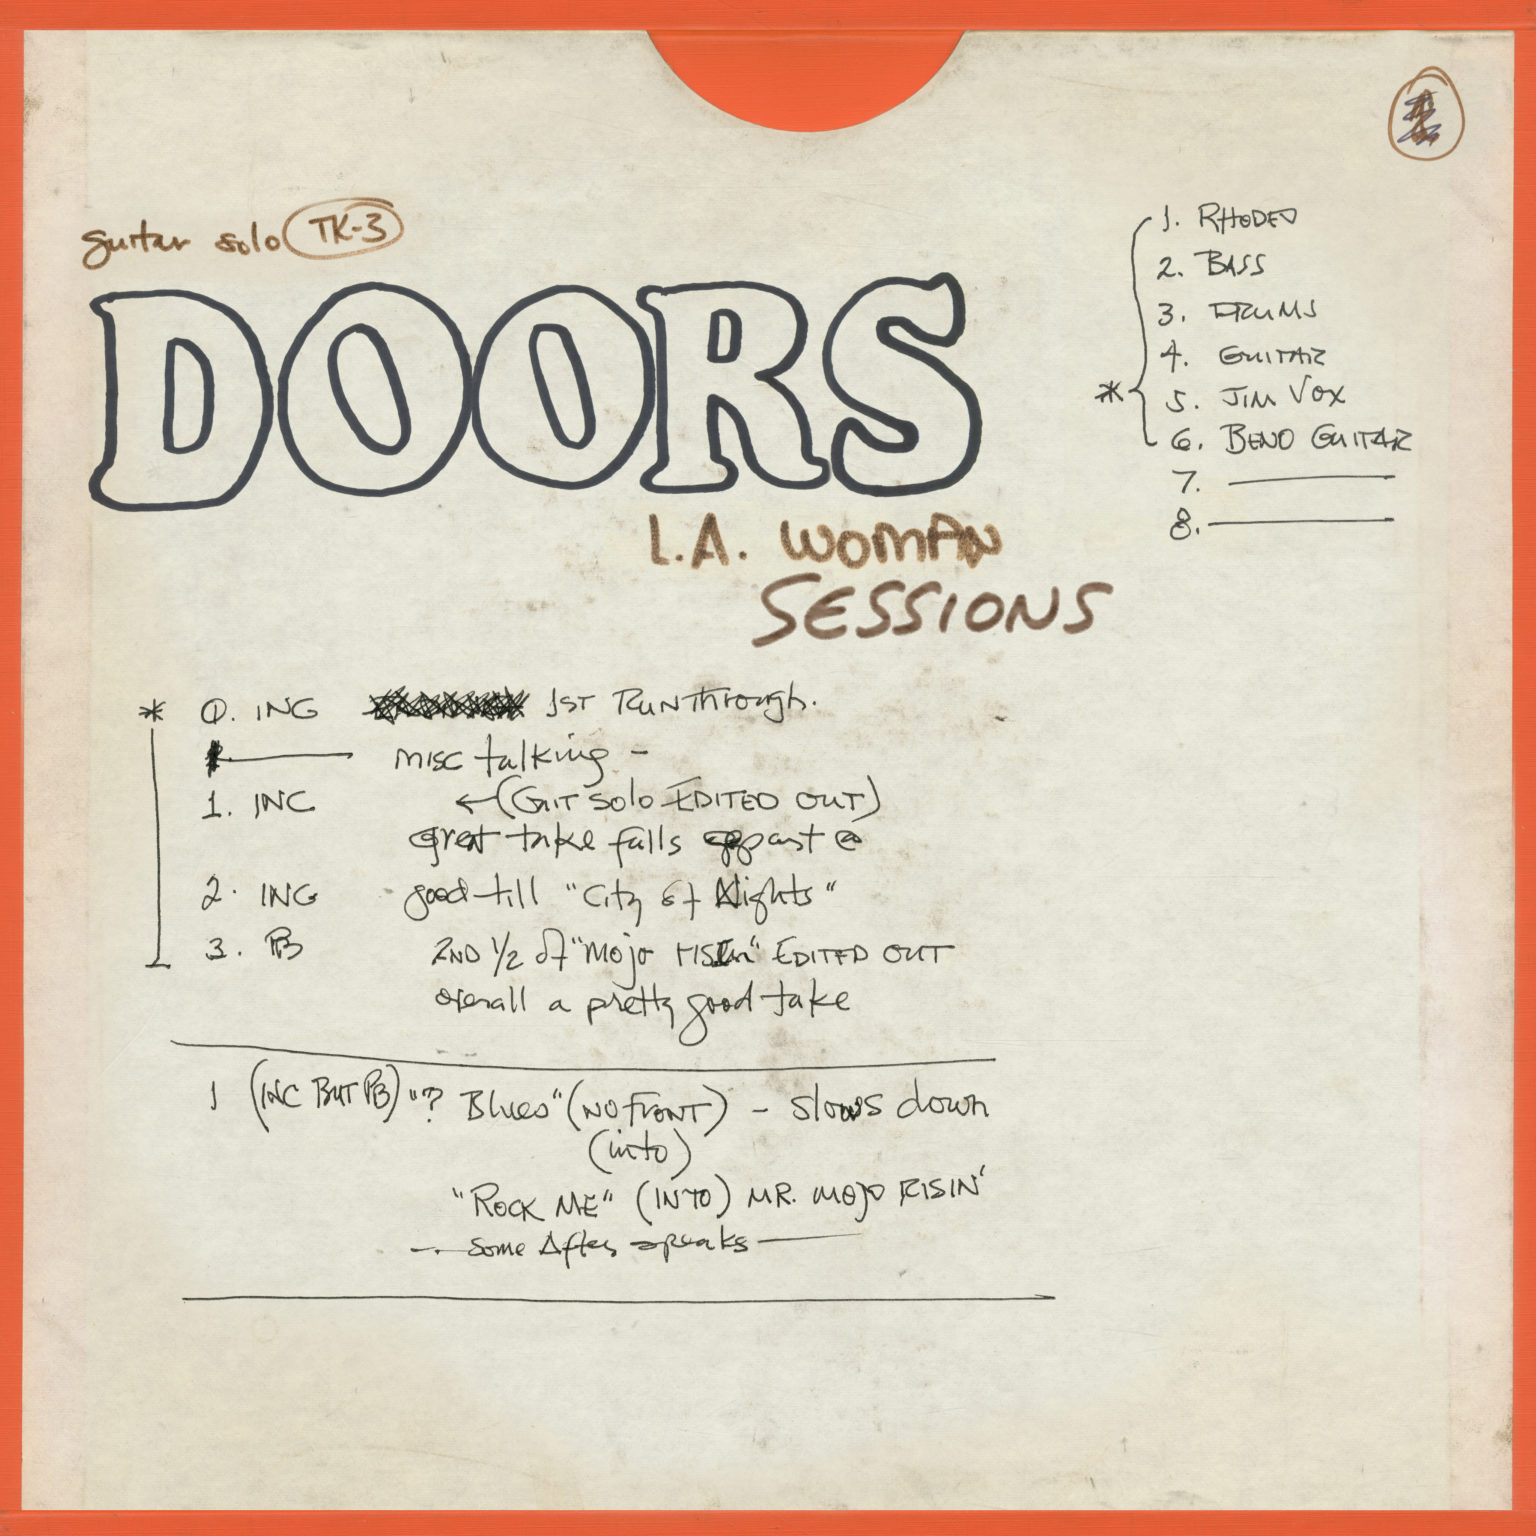 guitar solo TK-3
DOORS
L.A. WOMAN
SESSIONS
1. RHODES
2. BASS
3. DRUMS
4. GUITAR
* 5. JIM VOX
6. BENO GUITAR
7.
8.
* 0. ING 1ST RUNThrough.
misc talking -
1. INC ←(GUIT Solo EDITED OUT)
great take falls appart @
2. ING good till "City of Nights"
3. PB 2ND 1/2 of "Mojo risin" EDITED OUT
overall a pretty good take
1 (INC BUT PB) "? Blues" (NO FRONT) - slows down
(into)
"ROCK ME" (INTO) MR. MOJO RISIN'
Some After speaks